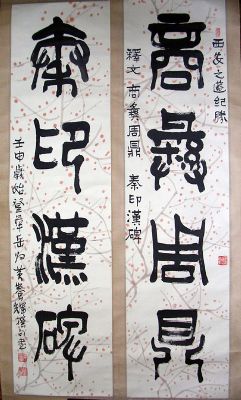 西安之遊紀勝
商彝周鼎
釋文 商彝周鼎 秦印漢碑
秦印漢碑
壬申歲始 黃養輝撰